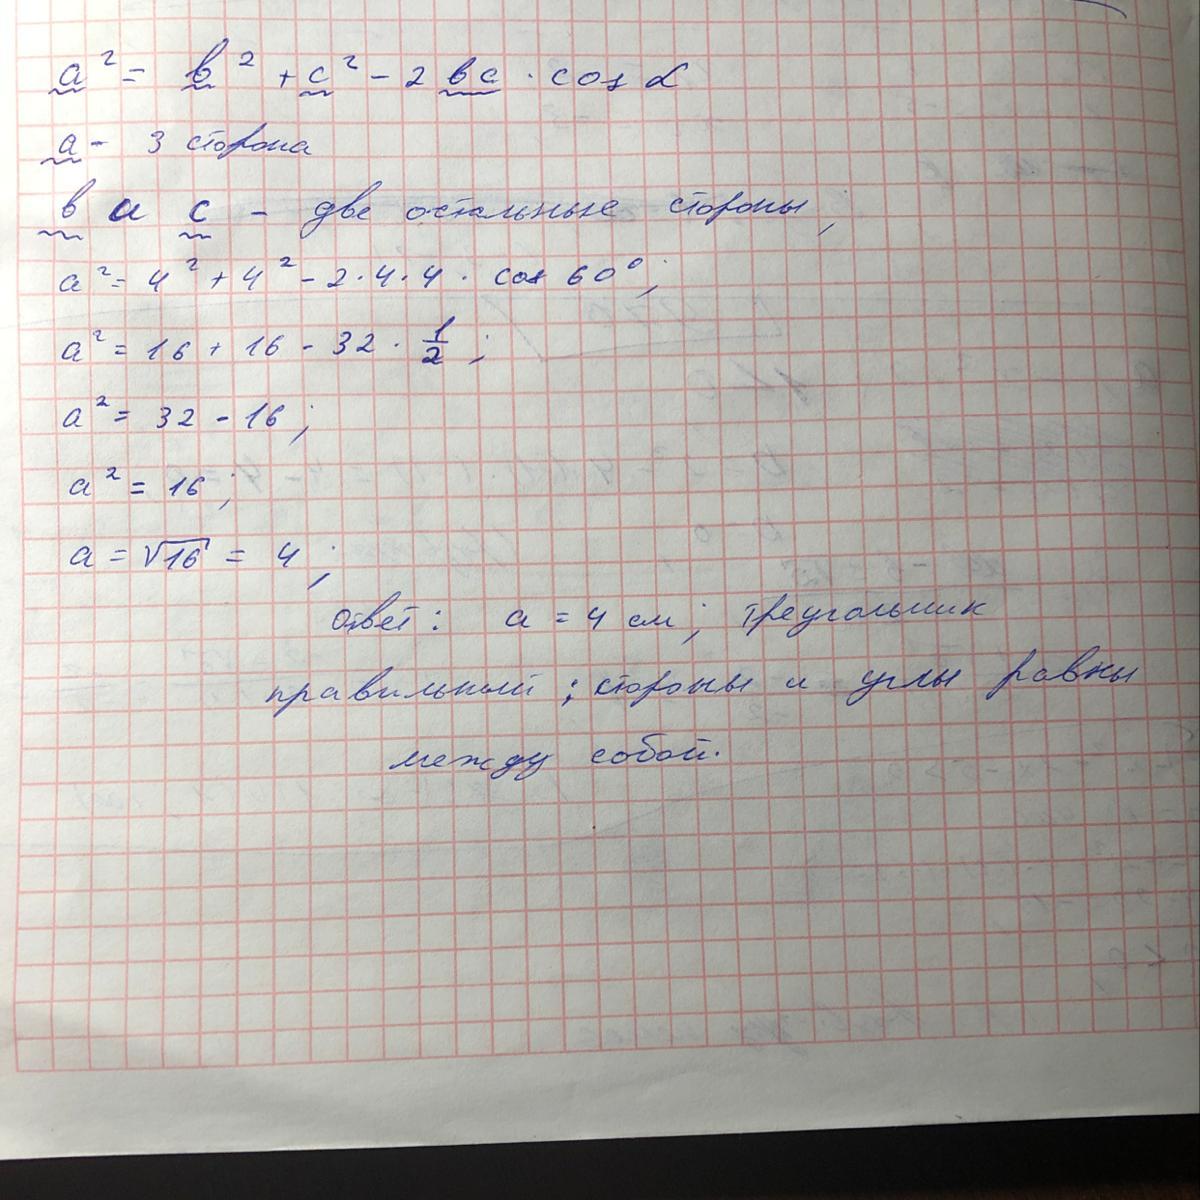 a² = в² + c² - 2 вс · cos α
a - 3 сторона
в и с - две остальные стороны;
a² = 4² + 4² - 2 · 4 · 4 · cos 60°;
a² = 16 + 16 - 32 · 1/2;
a² = 32 - 16;
a² = 16;
a = √16 = 4;
ответ: a = 4 см; треугольник
правильный; стороны и углы равны
между собой.